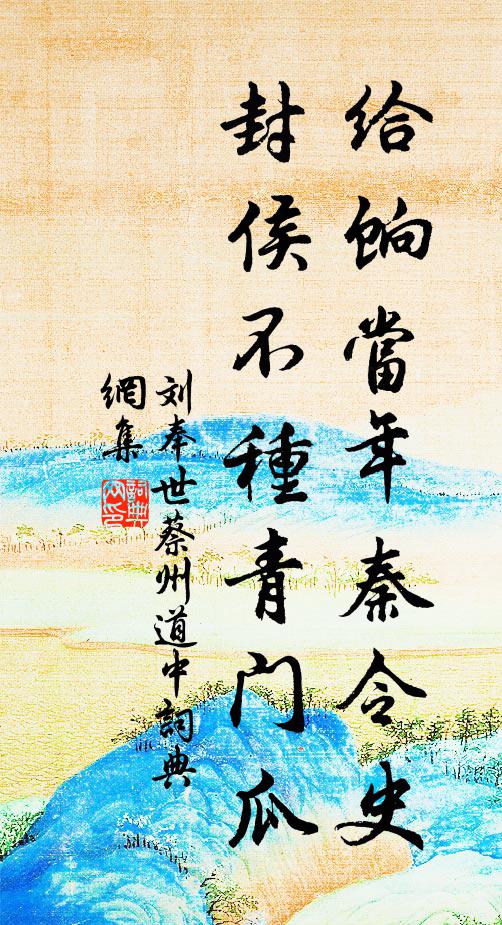 給餉當年秦令史
封侯不種青門瓜
刘奉世蔡州道中詞典
網集
詞典